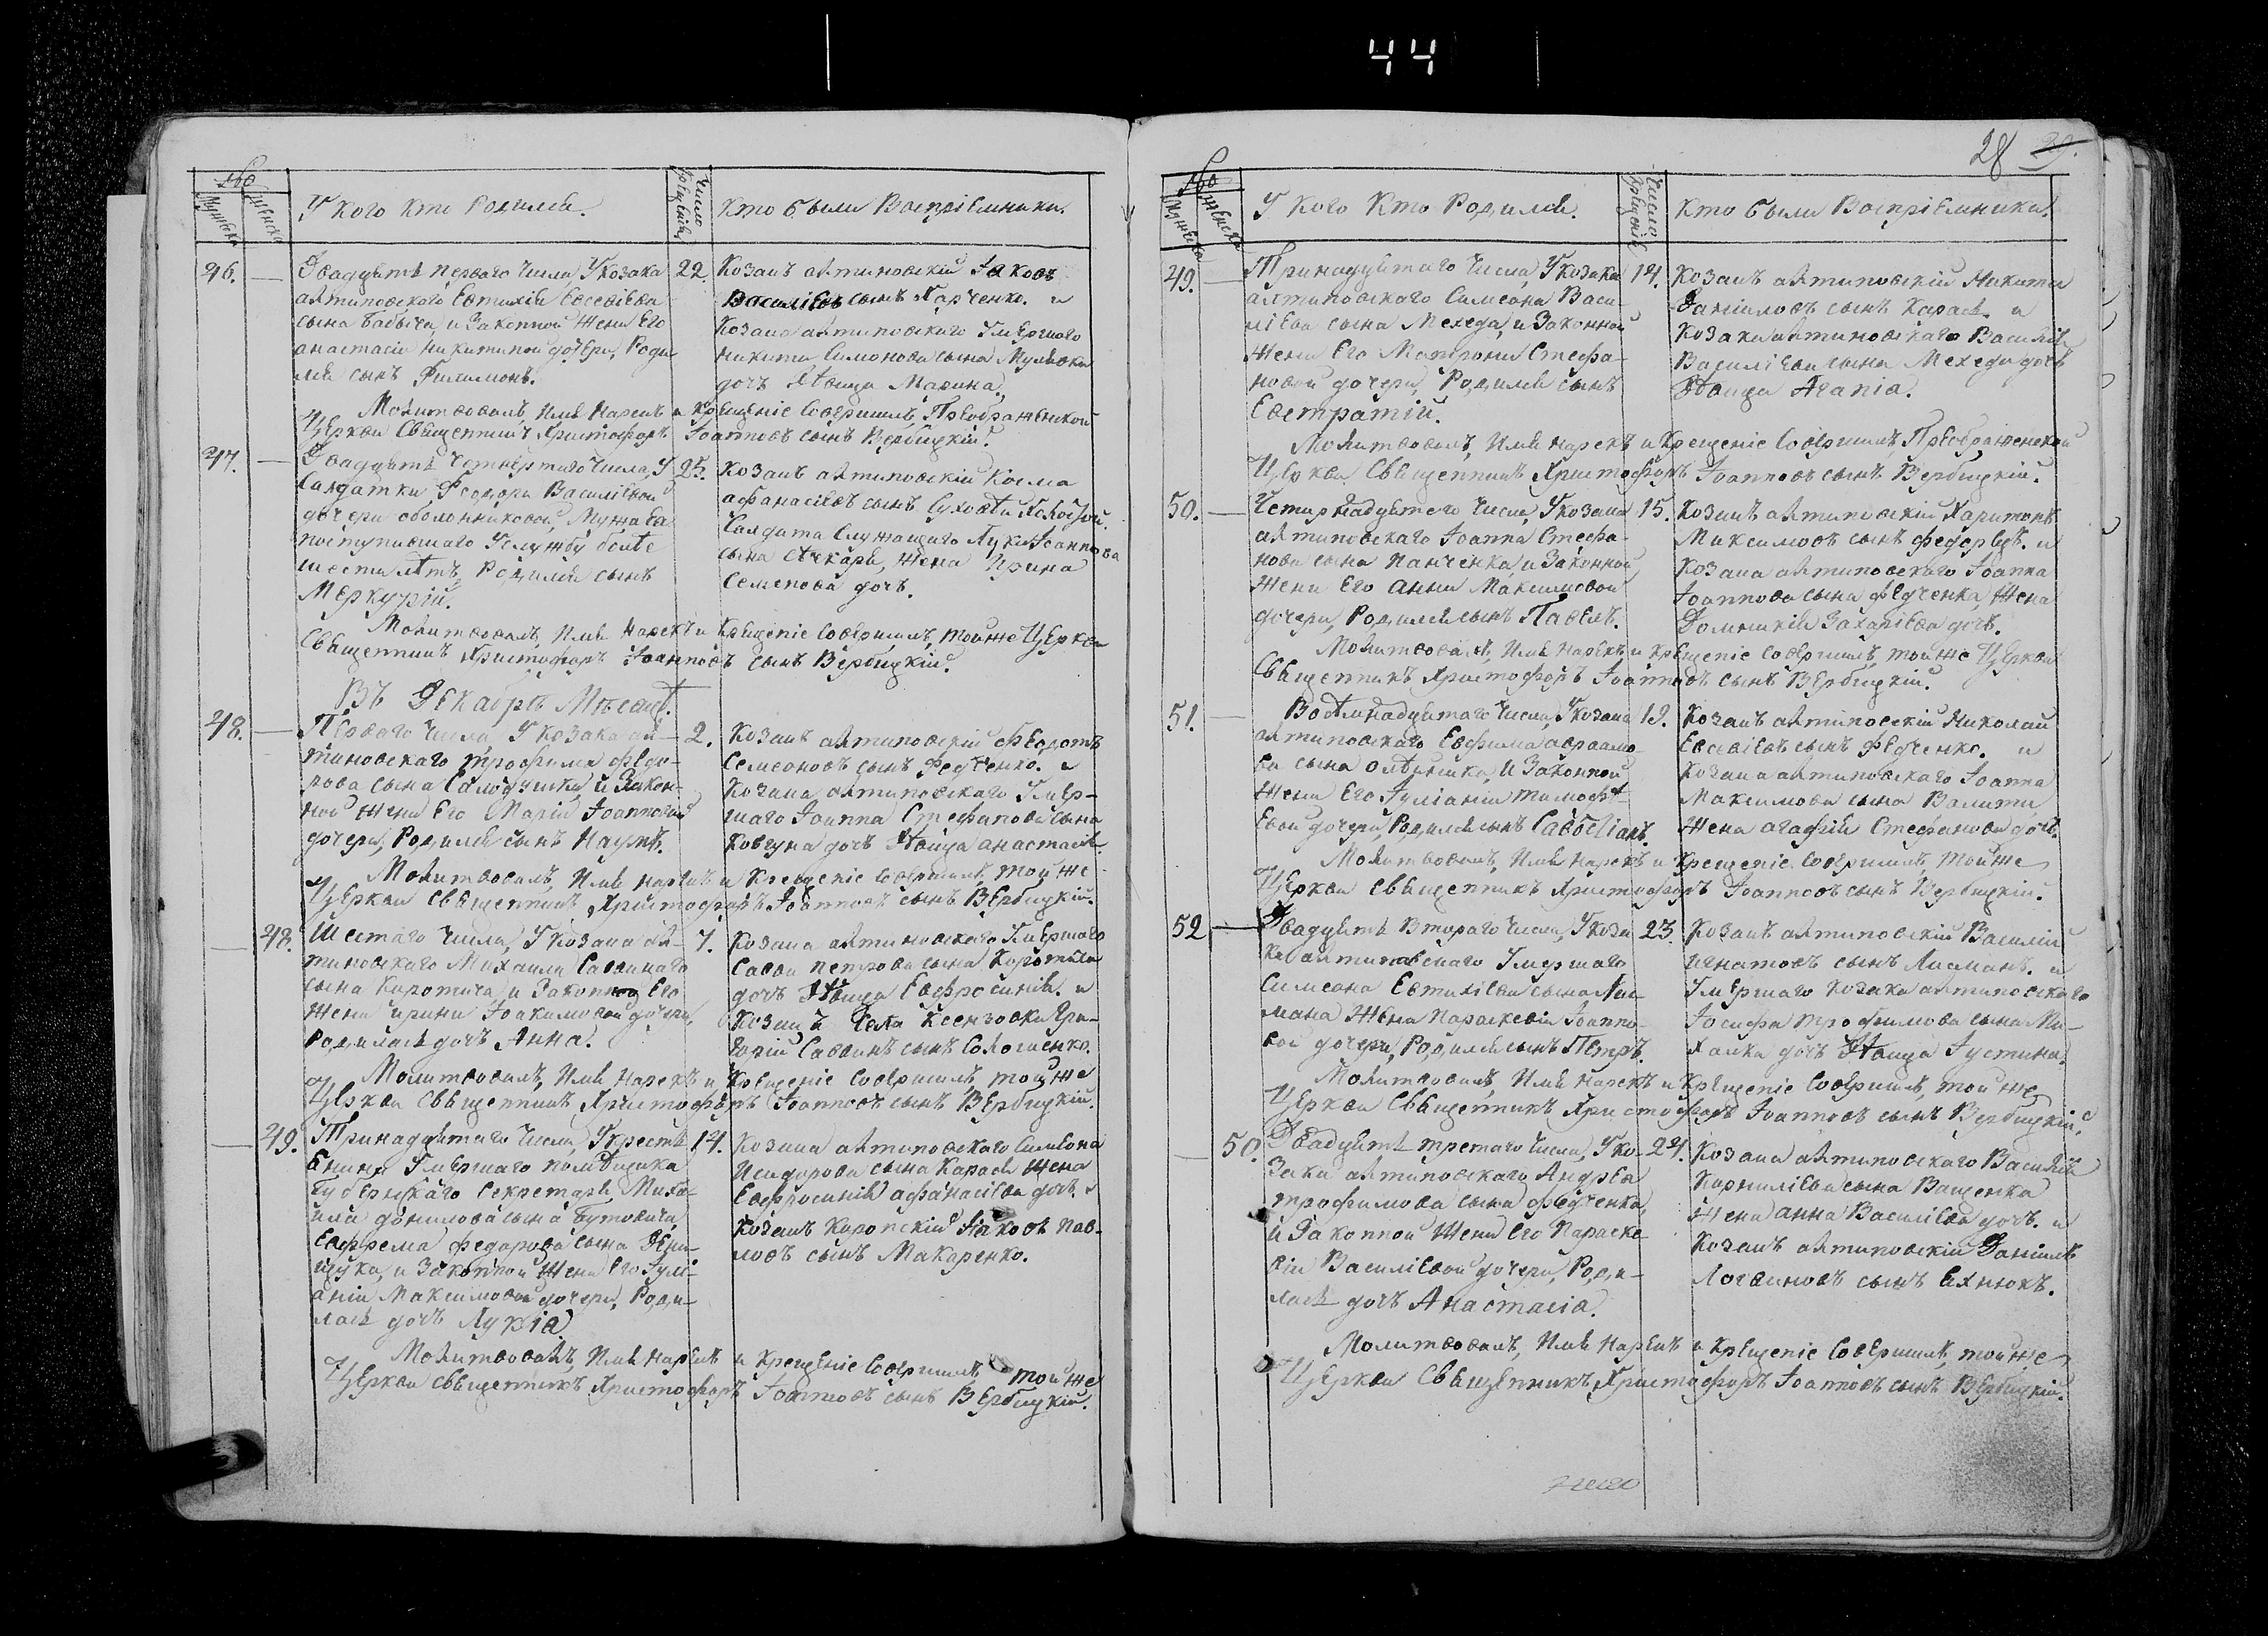 44
28 29.
№
Мужеска
Женска
У Кого Кто Родился.
Число Крещенія
Кто были Воспріемники.
46.
Двадцять перваго Числа, У козака
алтиновского Евтихія Евсевіева
сына Бабыча, и Законной жены Его
анастасіи никитиной дочери, Роди
лся сынъ Филимонъ.
22.
Козакъ алтиновскій Іаковъ
Василіевъ сынъ Харченко. и
Козака алтиновского Умершого
никити Симонова сына
дочъ дѣвица Марина.
Молитвовалъ, Имя Нарекъ и Крещеніе Совершилъ, Преображенской
Церкви Священникъ Христофоръ Іоанновъ сынъ Вербицкій.
47.
Двадцять Четвертого Числа, У
Салдатки Феодоры Василіевой
дочери оболонниковой, Мужа Ея
поступившаго Услужбу болѣе
шести лѣтъ, Родился сынъ
Меркурій.
25.
Козакъ алтиновскій Косма
афанасіевъ сынъ
Салдата Служащего Луки Іоаннова
сына жена Ирина
Семенова дочъ.
Молитвовалъ, Имя Нарекъ и Крещеніе Совершилъ, тойже Церкви
Священникъ Христофоръ Іоанновъ сынъ Вербицкій.
Въ Декабрѣ Мѣсяцѣ.
48.
Первого Числа, У козака ал-
тиновского трофима Федо-
рова сына и Закон-
ной Жены Его Маріи Іоанновой
дочери, Родился сынъ Наумъ.
2.
Козакъ алтиновскій Федотъ
Семеоновъ сынъ Федченко. и
Козака алтиновского Умер-
шаго Іоанна Стефанова сына
Ковтуна дочъ дѣвица анастасія.
Молитвовалъ, Имя Нарекъ и Крещеніе Совершилъ, тойже
Церкви Священникъ Христофоръ Іоанновъ сынъ Вербицкій.
48.
Шестаго Числа, У козака ал-
тиновского Михаила Саввиного
сына Коротича, и Законной Его
жены ирины Іоакимовой дочери,
Родилась дочъ Анна.
7.
Козака алтиновского Умершаго
Саввы петрова сына Коротича
дочъ дѣвица Евфросинія. и
Козакъ Села Ксензовки Гри-
горій Саввинъ сынъ Соломшенко.
Молитвовалъ, Имя Нарекъ и Крещеніе Совершилъ, тойже
Церкви Священникъ Христофоръ Іоанновъ сынъ Вербицкій.
49.
Тринадцятаго Числа, У крестя
янина Умершаго помѣщика
Губернскаго Секретаря, Миха-
ила данилова сына Бутовича,
Евфрема федорова сына
и Законной Жены Его Іулі-
аніи Максимовой дочери, Роди-
лась дочъ Лукія.
14.
Козака алтиновского Симеона
Исидорова сына Карася Жена
Евфросинія афанасіева дочъ. и
Козакъ Коропскій Іаковъ Пав-
ловъ сынъ Макаренко.
Молитвовалъ, Имя Нарекъ и Крещеніе Совершилъ, тойже
Церкви Священникъ Христофоръ Іоанновъ сынъ Вербицкій.
№
Мужеска
Женска
У Кого Кто Родился.
Число Крещенія
Кто были Воспріемники.
49.
Тринадцятаго Числа, У козака
алтиновского Симеона Васи-
ліева сына Мехеда, и Законной
жены Его Матроны Стефа-
новой дочери, Родился сынъ
Евстратій.
14.
Козакъ алтиновскій Никита
Даніиловъ сынъ Карась. и
Козака алтиновского Василія
Василіева сына Мехеда дочъ
дѣвица Агапія.
Молитвовалъ, Имя нарекъ и Крещеніе Совершилъ, Преображенской
Церкви Священникъ Христофоръ Іоанновъ сынъ Вербицкій.
50.
Четирнадцятого Числа, У козака
алтиновского Іоанна Стефа-
нова сына Панченка, и Законной
жены Его анны Максимовой
дочери, Родился сынъ Павелъ.
15.
Козакъ алтиновскій Харитонъ
Максимовъ сынъ и
Козака алтиновского Іоанна
Іоаннова сына Федченка, Жена
Домникія Захаріева дочъ.
Молитвовалъ, Имя нарекъ и Крещеніе Совершилъ, тойже Церкви
Священникъ Христофоръ Іоанновъ сынъ Вербицкій.
51.
Восемнадцятаго Числа, У козака
алтиновского Евфима авраамо-
ва сына и Законной
жены Его Іуліаніи тимофѣ-
евой дочери, Родился сынъ Савостіанъ.
19.
Козакъ алтиновскій Николай
Евсевіевъ сынъ Федченко. и
Козака алтиновского Іоанна
Максимова сына
Жена агафія Стефанова дочъ.
Молитвовалъ, Имя нарекъ и Крещеніе Совершилъ, тойже
Церкви Священникъ Христофоръ Іоанновъ сынъ Вербицкій.
52
Двадцять Втораго Числа, У коза
ка алтиновского Умершаго
Симеона Евтихіева сына Лис-
мана жена параскевія Іоанно-
вой дочери, Родился сынъ Петръ.
23.
Козакъ алтиновскій Василій
игнатовъ сынъ Лисманъ. и
Умершаго козака алтиновского
Іосифа трофимова сына Ми-
халка дочъ дѣвица Іустина.
Молитвовалъ, Имя нарекъ и Крещеніе Совершилъ, тойже
Церкви Священникъ Христофоръ Іоанновъ сынъ Вербицкій.
50.
Двадцять третаго Числа, У ко-
зака алтиновского Андрея
трофимова сына Федченка,
и Законной Жены Его Параске-
віи Василіевой дочери, Роди-
лась дочъ Анастасіа.
24.
Козака алтиновского Василія
Корниліева сына Ващенка
Жена анна Василіева дочъ. и
Козакъ алтиновскій Даніилъ
Логвиновъ сынъ
Молитвовалъ, Имя Нарекъ и Крещеніе Совершилъ, тойже
Церкви Священникъ Христофоръ Іоанновъ сынъ Вербицкій.